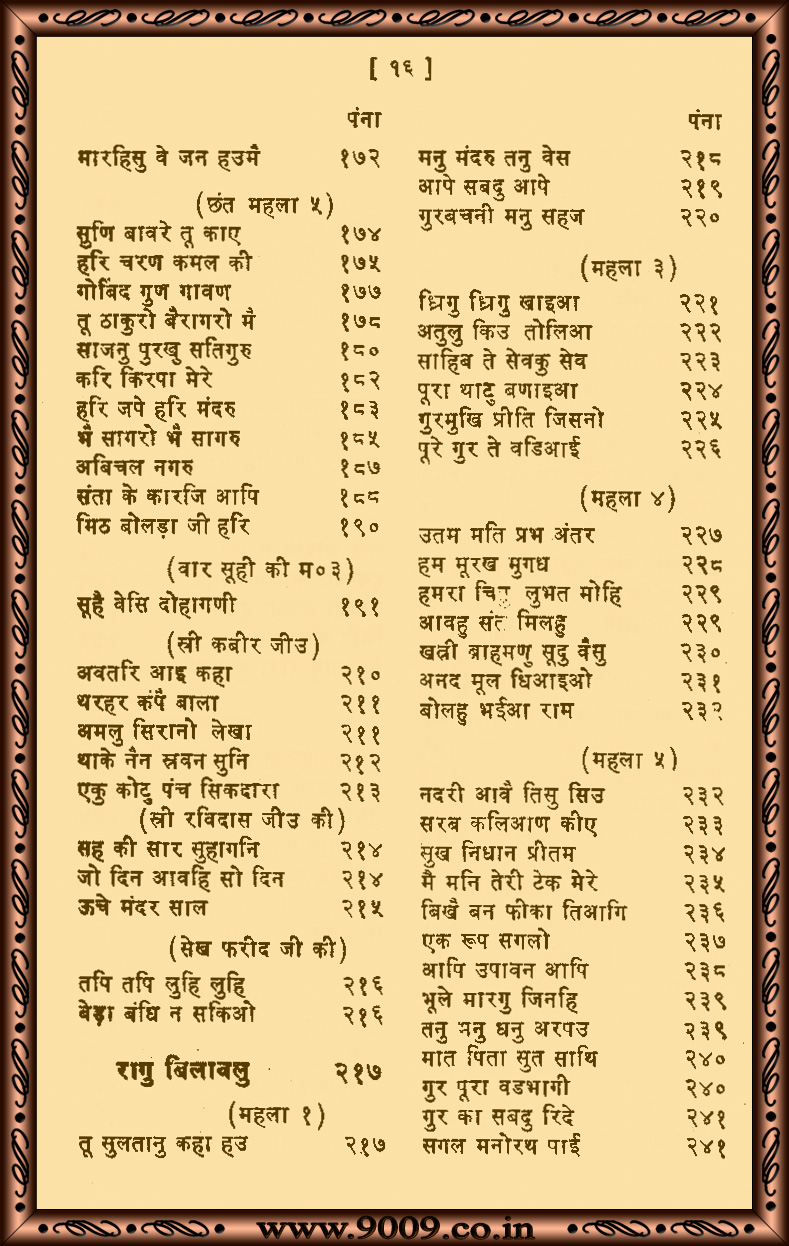 [ १६ ]
पंना
मारहिसु वे जन हउमै १७२
(छंत महला ५)
सुणि बावरे तू काए १७४
हरि चरण कमल की १७५
गोबिंद गुण गावण १७७
तू ठाकुरो बैरागरो मै १७८
साजनु पुरखु सतिगुरु १८०
करि किरपा मेरे १८२
हरि जपे हरि मंदरु १८३
भै सागरो भै सागरु १८५
अबिचल नगरु १८७
संता के कारजि आपि १८८
मिठ बोलड़ा जी हरि १९०
(वार सूही की म०३)
सूहै वेसि दोहागणी १९१
(स्री कबीर जीउ)
अवतरि आइ कहा २१०
थरहर कंपै बाला २११
अमलु सिरानो लेखा २११
थाके नैन स्रवन सुनि २१२
एकु कोटु पंच सिकदारा २१३
(स्री रविदास जीउ की)
सह की सार सुहागनि २१४
जो दिन आवहि सो दिन २१४
ऊचे मंदर साल २१५
(सेख फरीद जी की)
तपि तपि लुहि लुहि २१६
बेड़ा बंधि न सकिओ २१६
रागु बिलावलु २१७
(महला १)
तू सुलतानु कहा हउ २१७
पंना
मनु मंदरु तनु वेस २१८
आपे सबदु आपे २१९
गुरबचनी मनु सहज २२०
(महला ३)
ध्रिगु ध्रिगु खाइआ २२१
अतुलु किउ तोलिआ २२२
साहिब ते सेवकु सेव २२३
पूरा थाटु बणाइआ २२४
गुरमुखि प्रीति जिसनो २२५
पूरे गुर ते वडिआई २२६
(महला ४)
उतम मति प्रभ अंतर २२७
हम मूरख मुगध २२८
हमरा लुभत मोहि २२९
आवहु संत मिलहु २२९
खत्री ब्राहमणु सूदु वैसु २३०
अनद मूल धिआइओ २३१
बोलहु भईआ राम २३२
(महला ५)
नदरी आवै तिसु सिउ २३२
सरब कलिआण कीए २३३
सुख निधान प्रीतम २३४
मै मनि तेरी टेक मेरे २३५
बिखै बन फीका तिआगि २३६
एक रूप सगलो २३७
आपि उपावन आपि २३८
भूले मारगु जिनहि २३९
तनु मनु धनु अरपउ २३९
मात पिता सुत साथि २४०
गुर पूरा वडभागी २४०
गुर का सबदु रिदे २४१
सगल मनोरथ पाई २४१
www.9009.co.in